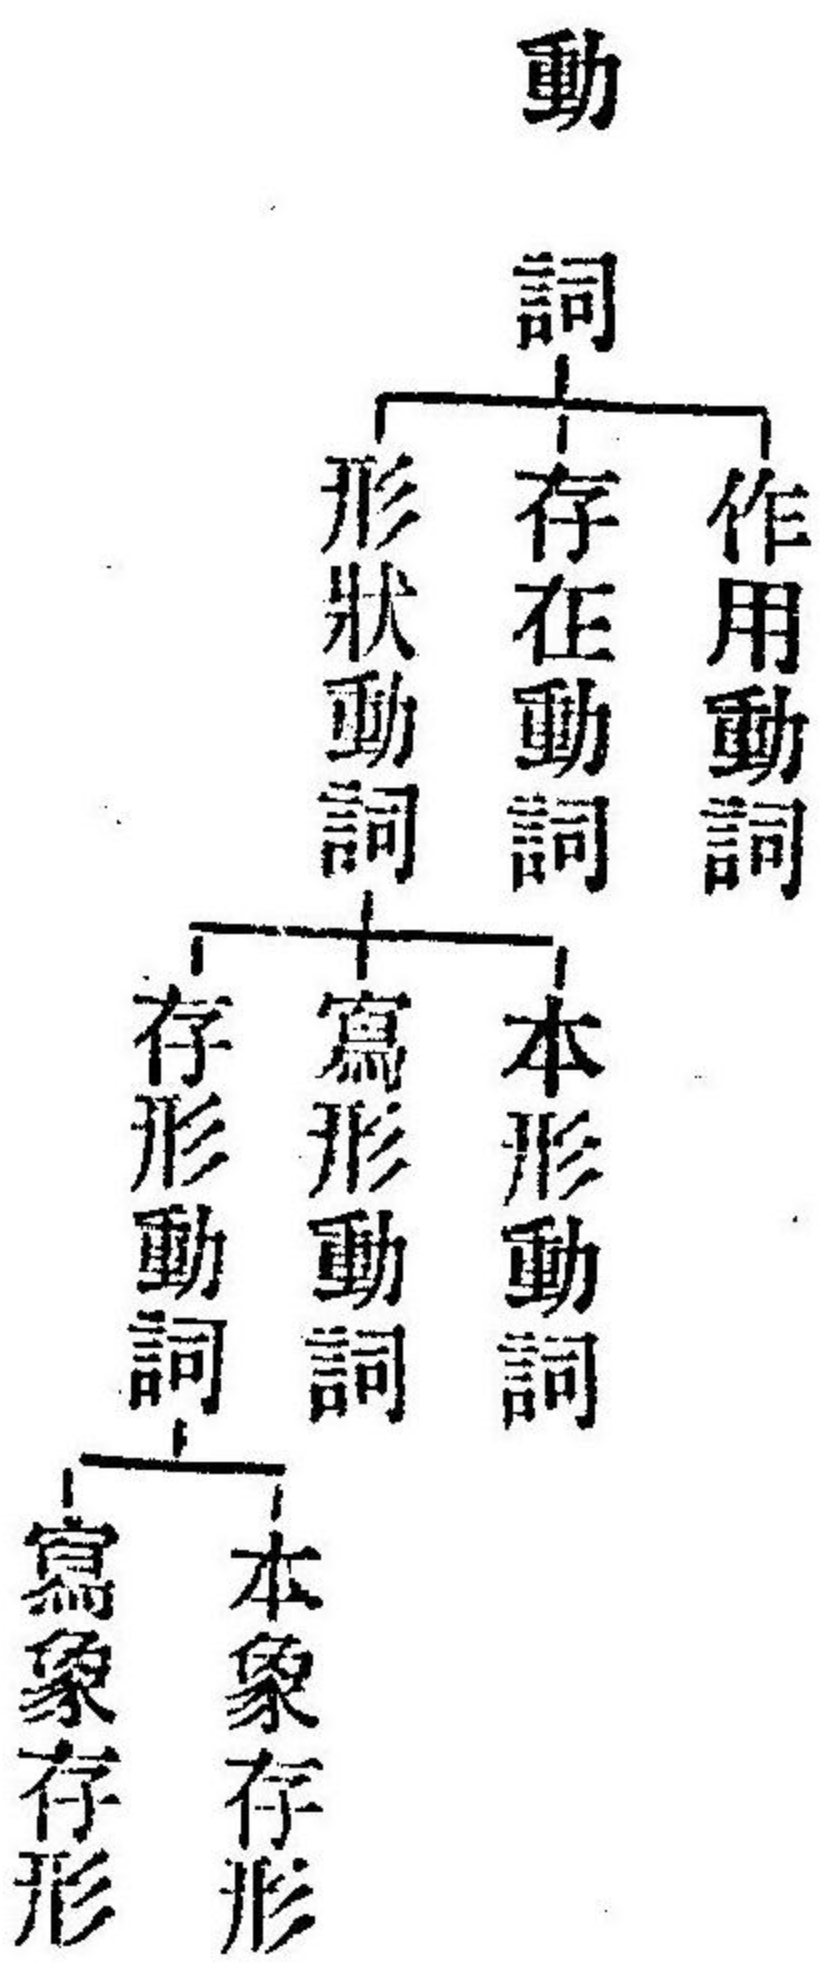 動詞
作用動詞
存在動詞
形狀動詞
本形動詞
寫形動詞
存形動詞
本象存形
寫象存形